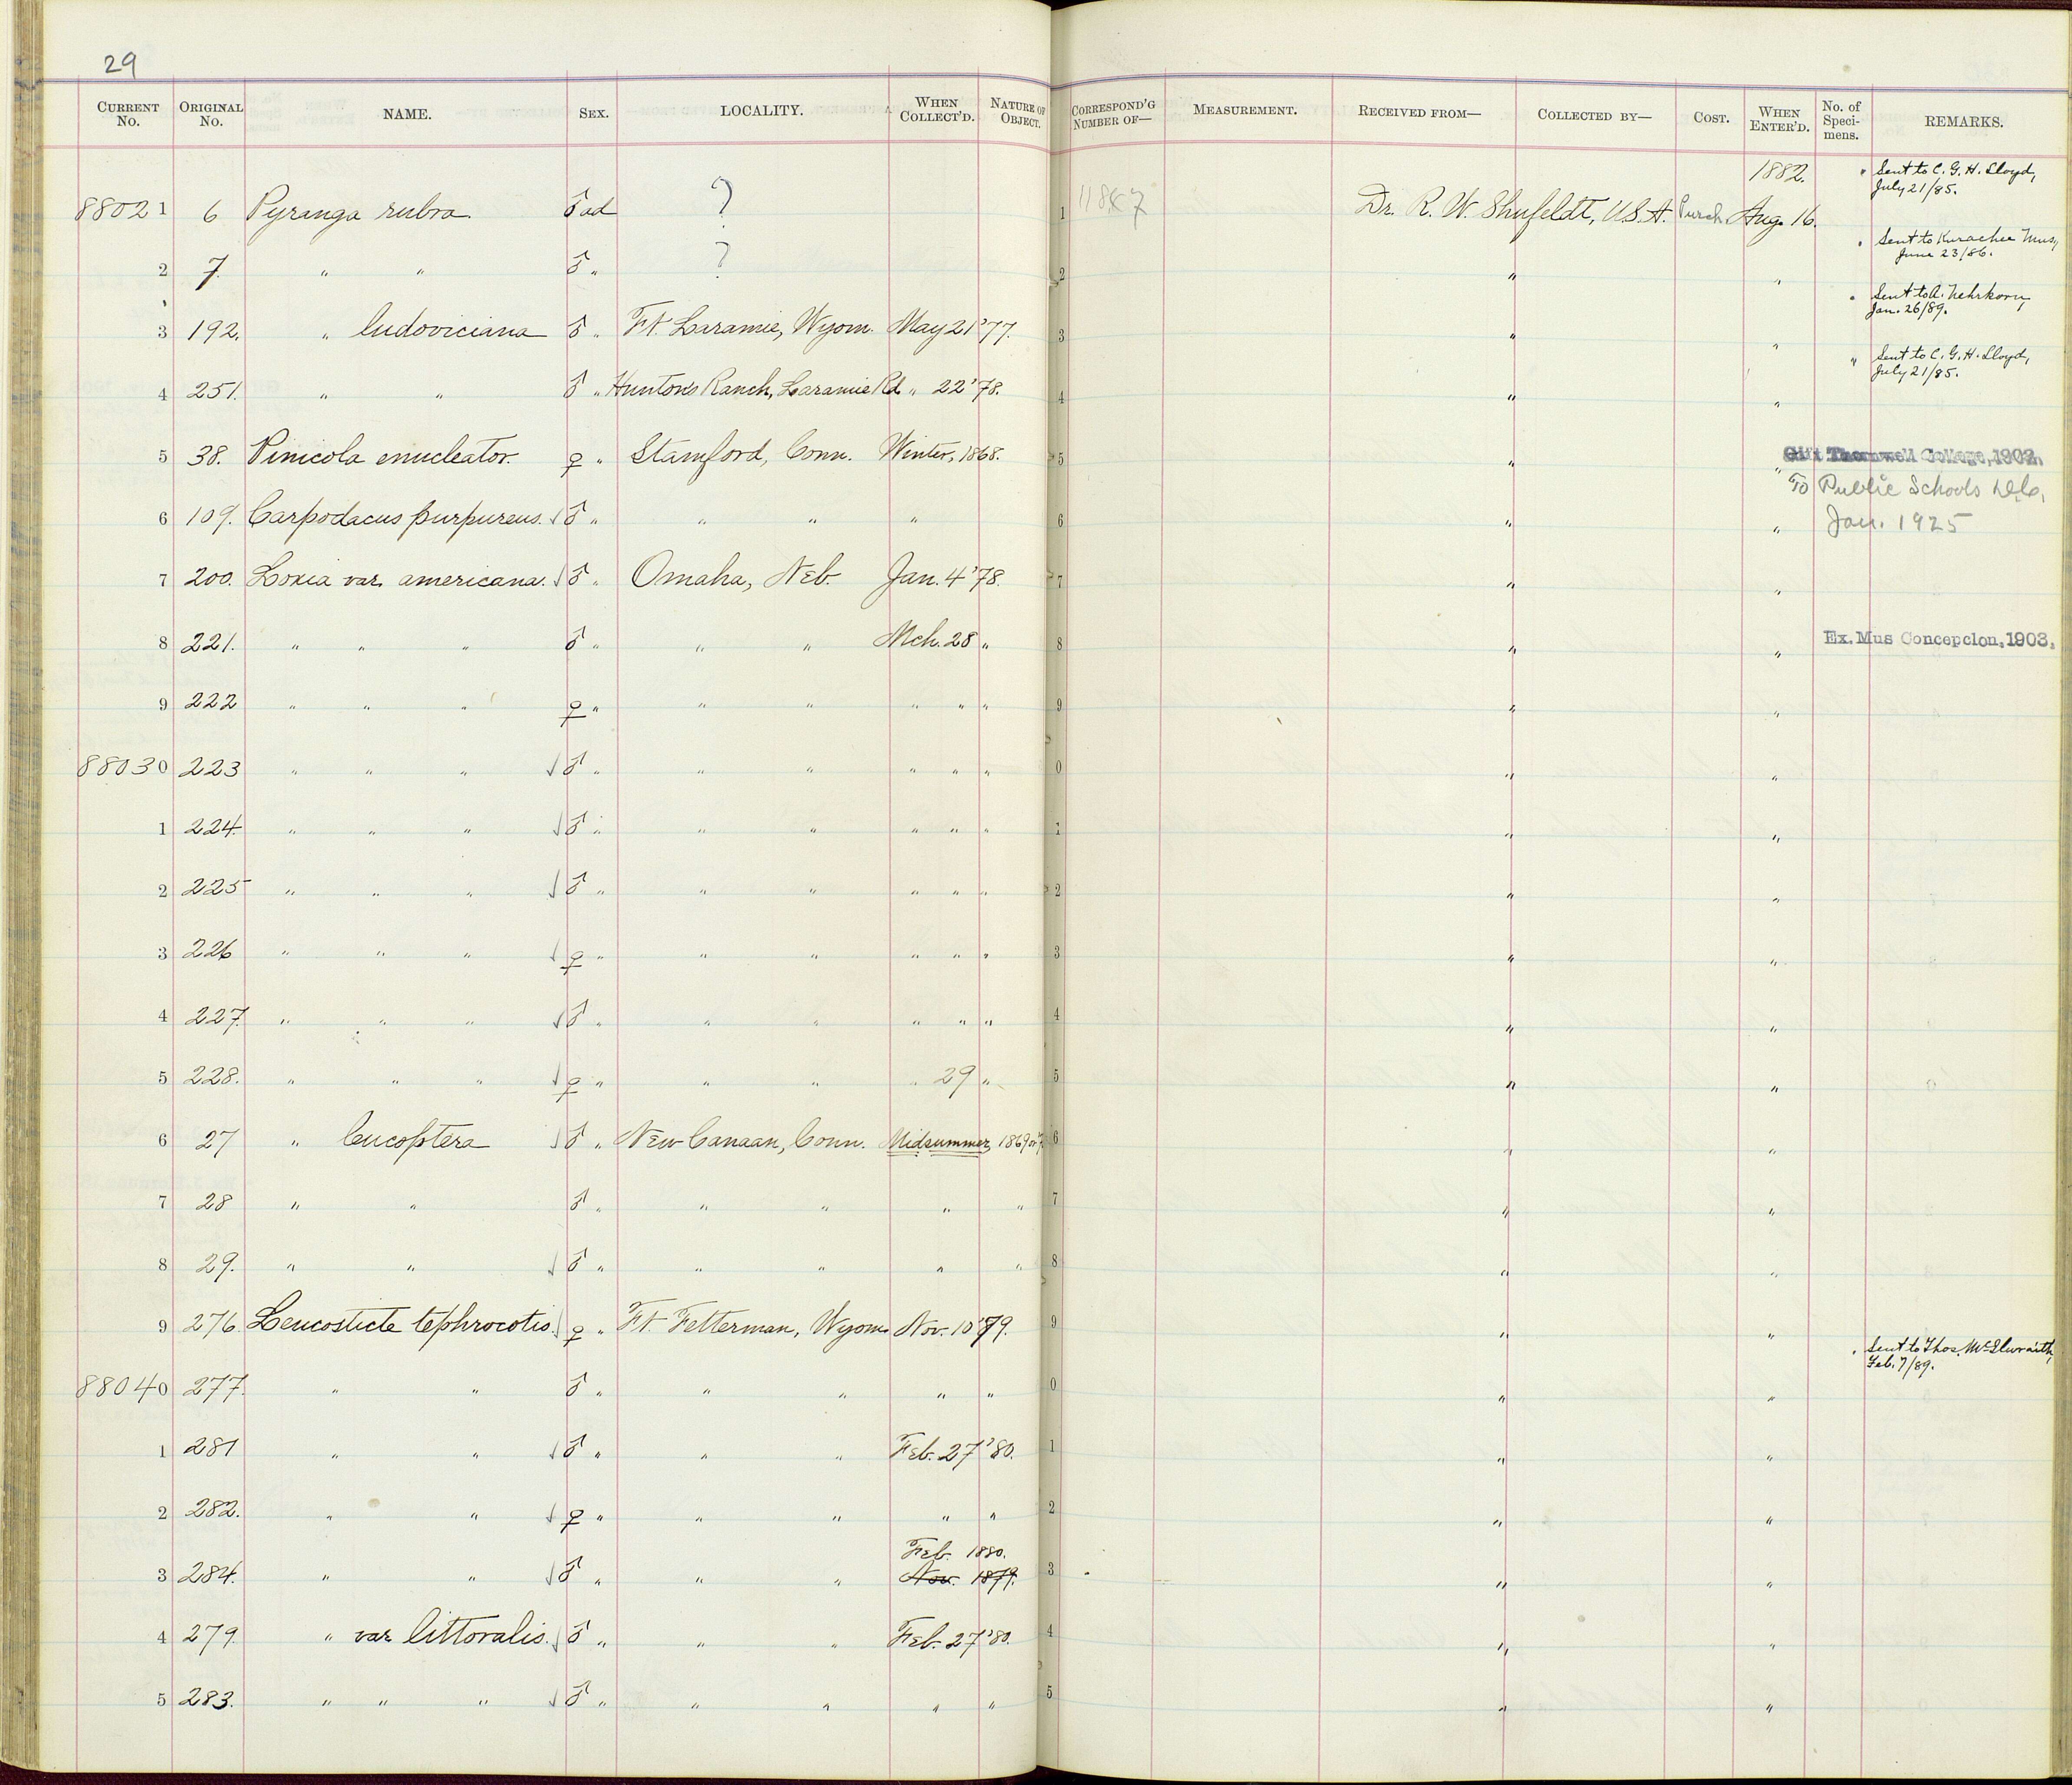 29
CURRENT No. ORIGINAL No. NAME. SEX. LOCALITY. WHEN COLLECT'D. NATURE OF OBJECT. CORRESPOND'G NUMBER OF— MEASUREMENT. RECEIVED FROM— COLLECTED BY— COST. WHEN ENTER'D. No. of Specimens. REMARKS.
1882. " Sent to C. G. H. Lloyd, July 21/85.
88021 6 Pyranga rubra. ♂ ad ? 1 Dr. R. W. Shufeldt, U.S.A. Purch. Aug. 16.
" Sent to Kurachee Mus., June 23/86.
2 7. " " ♂ " ? 2 " "
" Sent to A. Nehrkorn, Jan. 26/89.
3 192. " ludoviciana ♂ " Ft. Laramie, Wyom. May 21 '77. 3 " "
" Sent to C. G. H. Lloyd, July 21/85.
4 251. " " ♂ " Hunton's Ranch, Laramie Rd. " 22 '78. 4 " "
5 38. Pinicola enucleator. ♀ " Stamford, Conn. Winter, 1868. 5 " " Gift Thornwell College, 1902.
To Public Schools D.C.
6 109. Carpodacus purpureus. √ ♂ " " " " 6 " " Jan. 1925
7 200. Loxia var. americana. √ ♂ " Omaha, Neb. Jan. 4 '78. 7 " "
8 221. " " " ♂ " " " Mch. 28 " 8 " " Ex. Mus Concepcion, 1903.
9 222 " " " ♀ " " " " " " 9 " "
88030 223 " " " √ ♂ " " " " " " 0 " "
1 224. " " " √ ♂ " " " " " " 1 " "
2 225 " " " √ ♂ " " " " " " 2 " "
3 226 " " " √ ♀ " " " " " " 3 " "
4 227. " " " √ ♂ " " " " " " 4 " "
5 228. " " " √ ♀ " " " " 29 " 5 " "
6 27 " leucoptera √ ♂ " New Canaan, Conn. Midsummer, 1869 or 6 " "
7 28 " " ♂ " " " " " 7 " "
8 29. " " √ ♂ " " " " " 8 " "
9 276. Leucosticte tephrocotis. √ ♀ " Ft. Fetterman, Wyom. Nov. 10 '79. 9 " "
" Sent to Thos. McIlwraith, Feb. 7/89.
88040 277. " " ♂ " " " " " 0 " "
1 281 " " √ ♂ " " " Feb. 27 '80. 1 " "
2 282. " " √ ♀ " " " " " 2 " "
Feb. 1880.
3 284. " " √ ♂ " " " Nov. 1879. 3 " "
4 279. " var. littoralis. √ ♂ " " " Feb. 27 '80. 4 " "
5 283. " " " √ ♂ " " " " " 5 " "